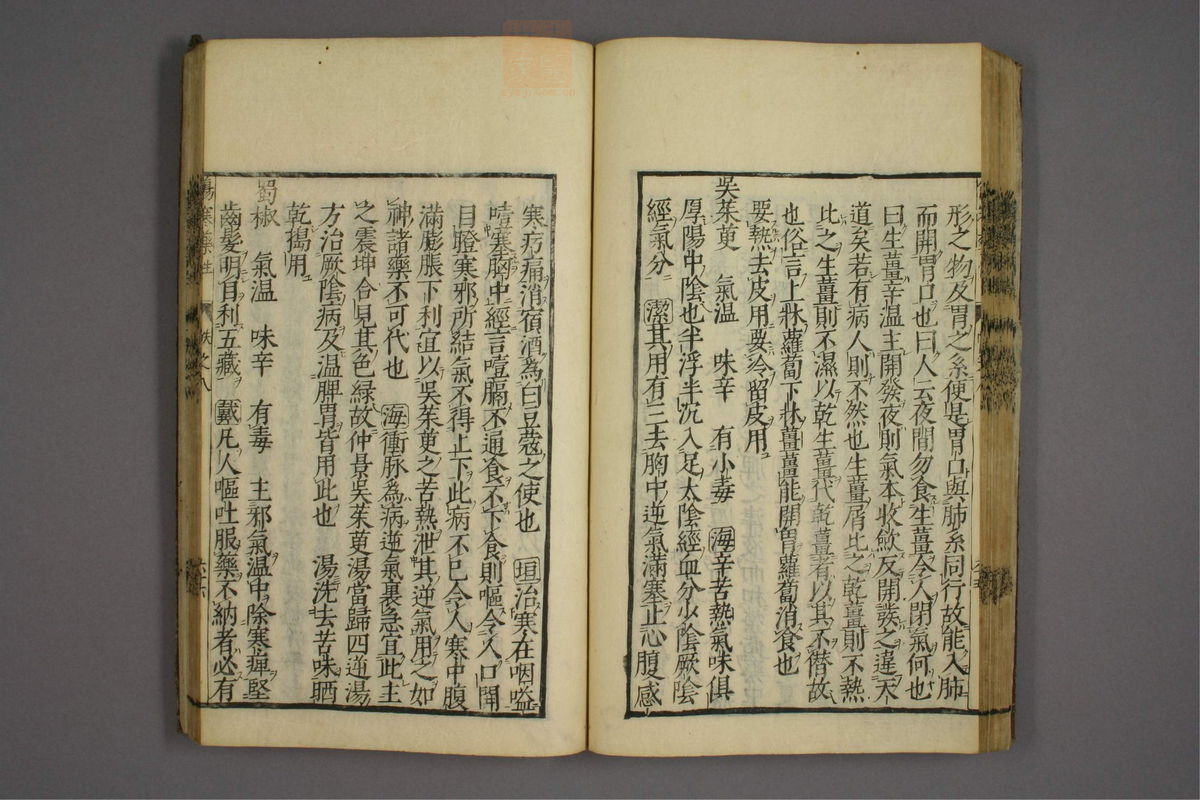 形之物及胃之系便是胃口與肺系同行故能入肺
而開胃口也曰人云夜間勿食生薑令人閉氣何也
曰生薑辛温主開發夜則氣本收歛反開發之違天
道矣若有病人則不然也生薑屑比之乾薑則不熱
比之生薑則不濕以乾生薑代乾薑者以其不僭故
也俗言上牀蘿蔔下牀薑薑能開胃蘿蔔消食也
要熱去皮用要冷留皮用
吳茱萸 氣温 味辛 有小毒 海辛苦熱氣味俱
厚陽中陰也半浮半沉入足太陰經血分少陰厥陰
經氣分 潔其用有三去胸中逆氣滿塞止心腹感
寒㽲痛消宿酒為白豆蔻之使也 垣治寒在咽嗌
噎塞胸中經言噎膈不通食不下食則嘔令人口開
目瞪寒邪所結氣不得上下此病不已令人寒中腹
滿膨脹下利宜以吳茱萸之苦熱泄其逆氣用之如
神諸藥不可代也 海衝脉為病逆氣裏急宜此主
之震坤合見其色緑故仲景吳茱萸湯當歸四逆湯
方治厥陰病及温脾胃皆用此也 湯洗去苦味晒
乾搗用
蜀椒 氣温 味辛 有毒 主邪氣温中除寒痺堅
齒髮明目利五藏 戴凡人嘔吐服藥不納者必有
傷寒藥性 之八 六十六